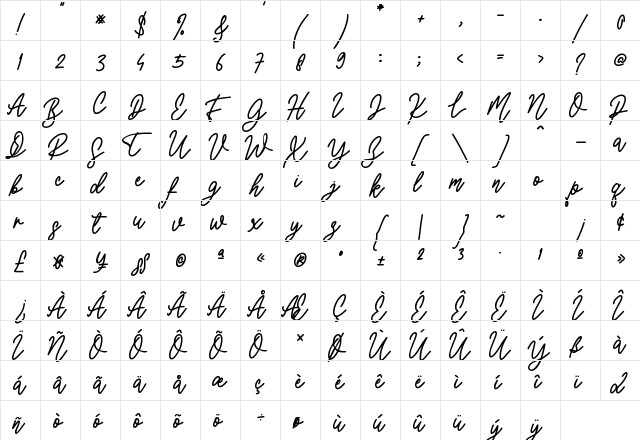 ! " # $ % & ' ( ) * + , - . / 0
1 2 3 4 5 6 7 8 9 : ; < = > ? @
A B C D E F G H I J K L M N O P
Q R S T U V W X Y Z [ \ ] ^ _ a
b c d e f g h i j k l m n o p q
r s t u v w x y z { | } ~ ¡ ¢
£ ¤ ¥ § © ª « ® ° ± 2 3 · 1 º »
¿ À Á Â Ã Ä Å Æ Ç È É Ê Ë Ì Í Î
Ï Ñ Ò Ó Ô Õ Ö × Ø Ù Ú Û Ü Ý ß à
á â ã ä å æ ç è é ê ë ì í î ï
ñ ò ó ô õ ö ÷ ø ù ú û ü ý ÿ